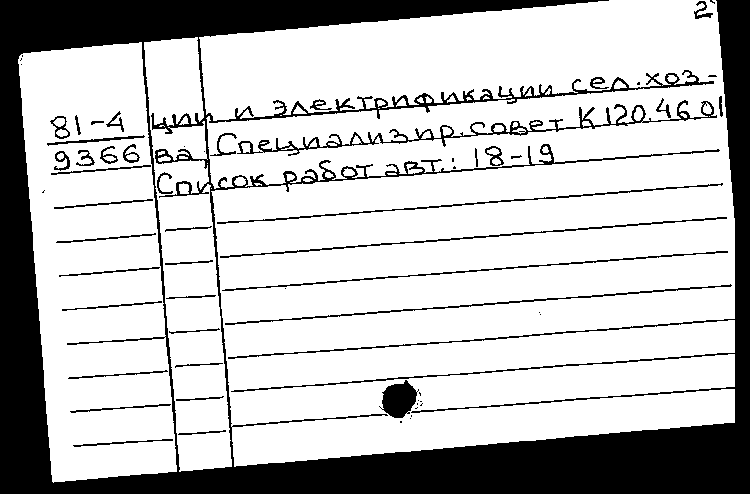 2
81-4 ции и электрификации сел. хоз-
9366 ва, Специализир. совет К 120.46.01
Список работ авт.: 18-19